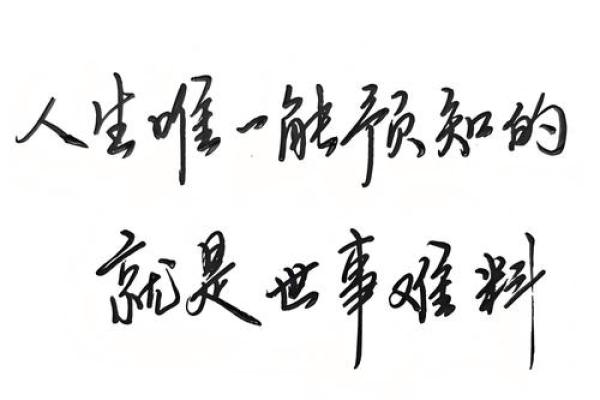 人生唯一能预知的
就是世事难料